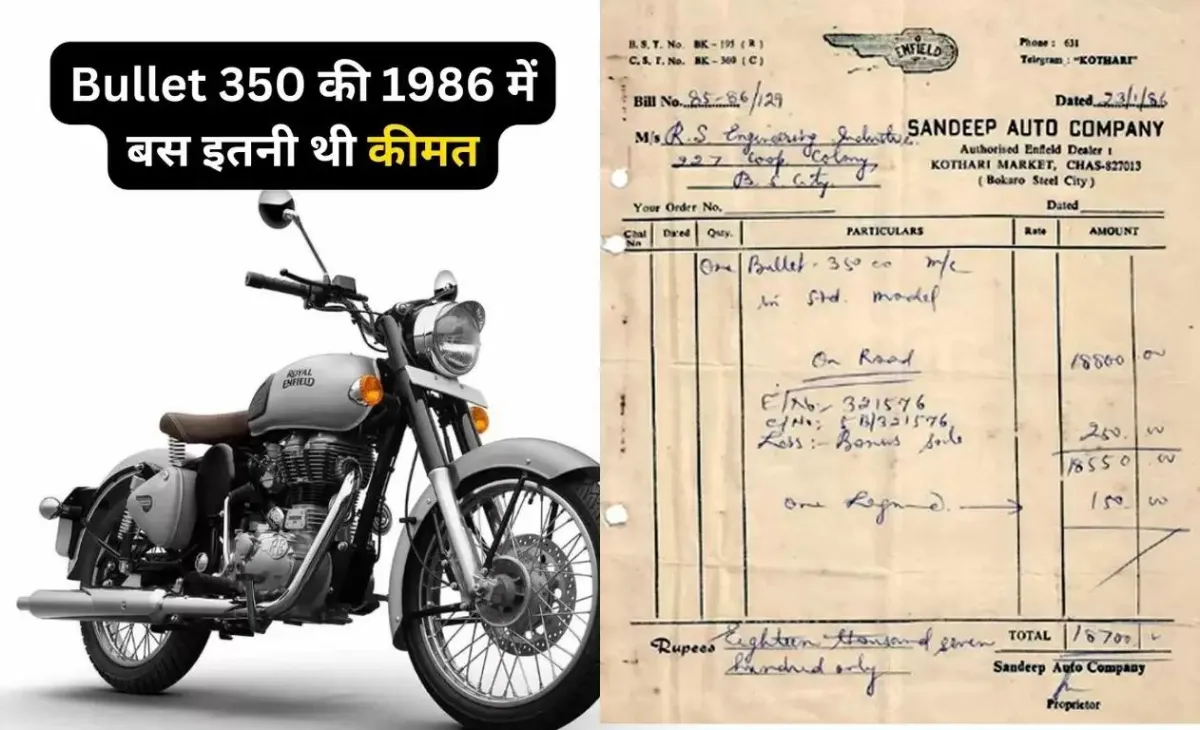 Bullet 350 की 1986 में
बस इतनी थी कीमत
ROYAL
ENFIELD
B.S.T. No. BK-195 (R)
C.S.T. No. BK-360 (C)
ENFIELD
Phone : 631
Telegram : "KOTHARI"
Bill No. 85-86/129
Dated 23/1/86
M/s R.S. Engineering Industries
227 Coop. Colony,
B.S. City.
SANDEEP AUTO COMPANY
Authorised Enfield Dealer :
KOTHARI MARKET, CHAS-827013
(Bokaro Steel City)
Your Order No.
Dated
Chal No Dated Qnty. PARTICULARS Rate AMOUNT
One Bullet - 350 cc m/c
in Std. model
On Road 18800.00
E/No:- 321576
C/No: 5B/321576
Less :- Bonus 250.00
18550.00
One 150.00
Rupees Eighteen thousand seven TOTAL 18700
hundred only
Sandeep Auto Company
Proprietor